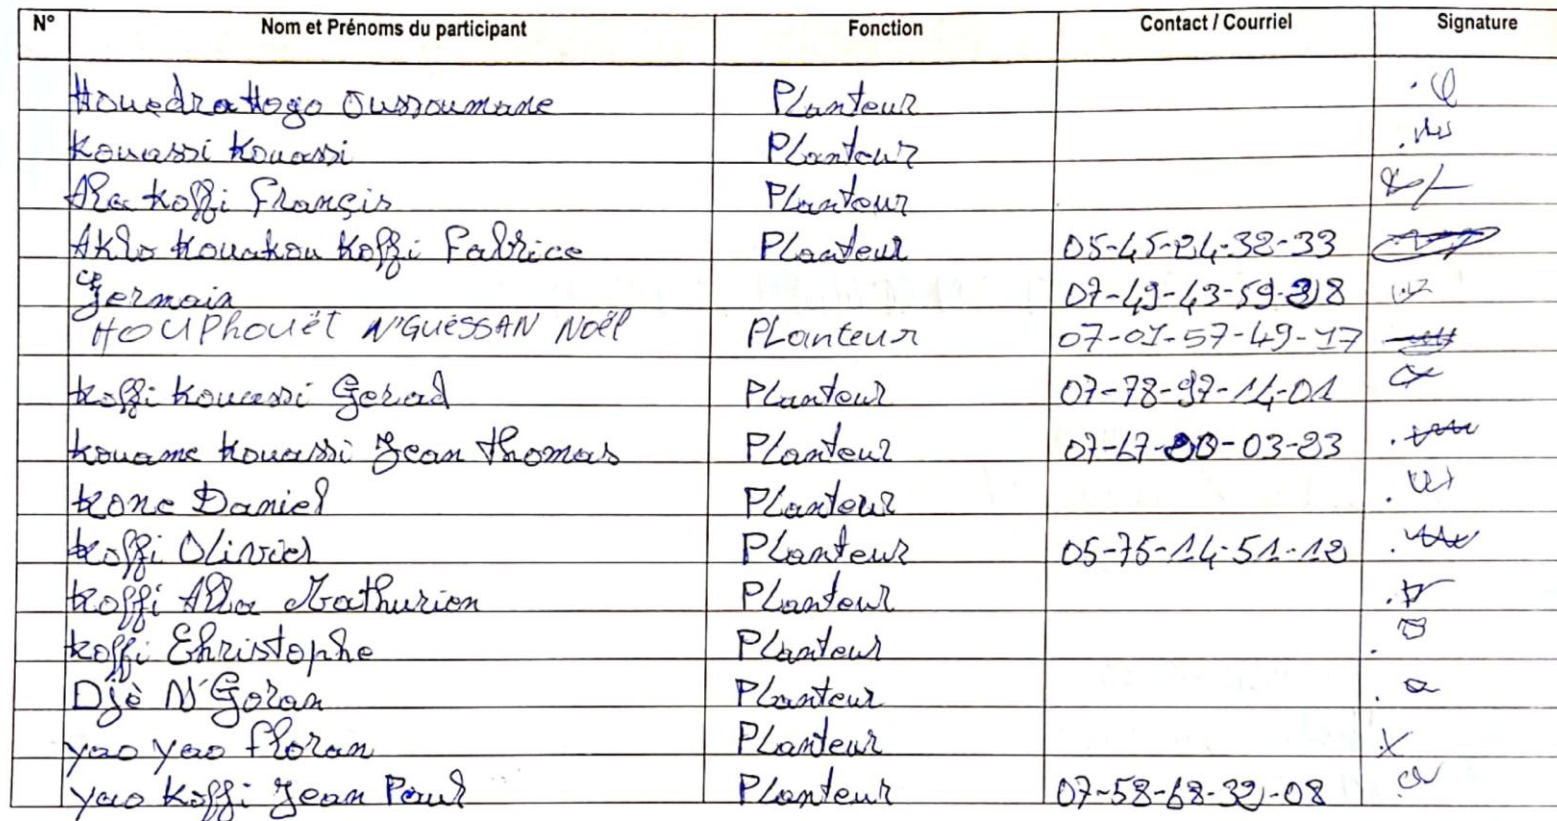 N° Nom et Prénoms du participant Fonction Contact / Courriel Signature
Houedrahogo Oussoumane Planteur
Kouassi Kouassi Planteur
Ala Koffi Françis Planteur
Aklo Kouakou Koffi Fabrice Planteur 05-45-24-32-33
Germain 07-49-43-59-38
HOUPhouët N'GUESSAN Noël Planteur 07-01-57-49-17
Koffi Kouassi Gerad Planteur 07-78-97-14-01
Kouame Kouassi Jean Thomas Planteur 07-47-03-23
Kone Daniel Planteur
Koffi Olivier Planteur 05-75-14-51-12
Koffi Alla Mathurien Planteur
Koffi Christophe Planteur
Djè N'Goran Planteur
yao yao floran Planteur
yao Koffi Jean Paul Planteur 07-58-68-32-08